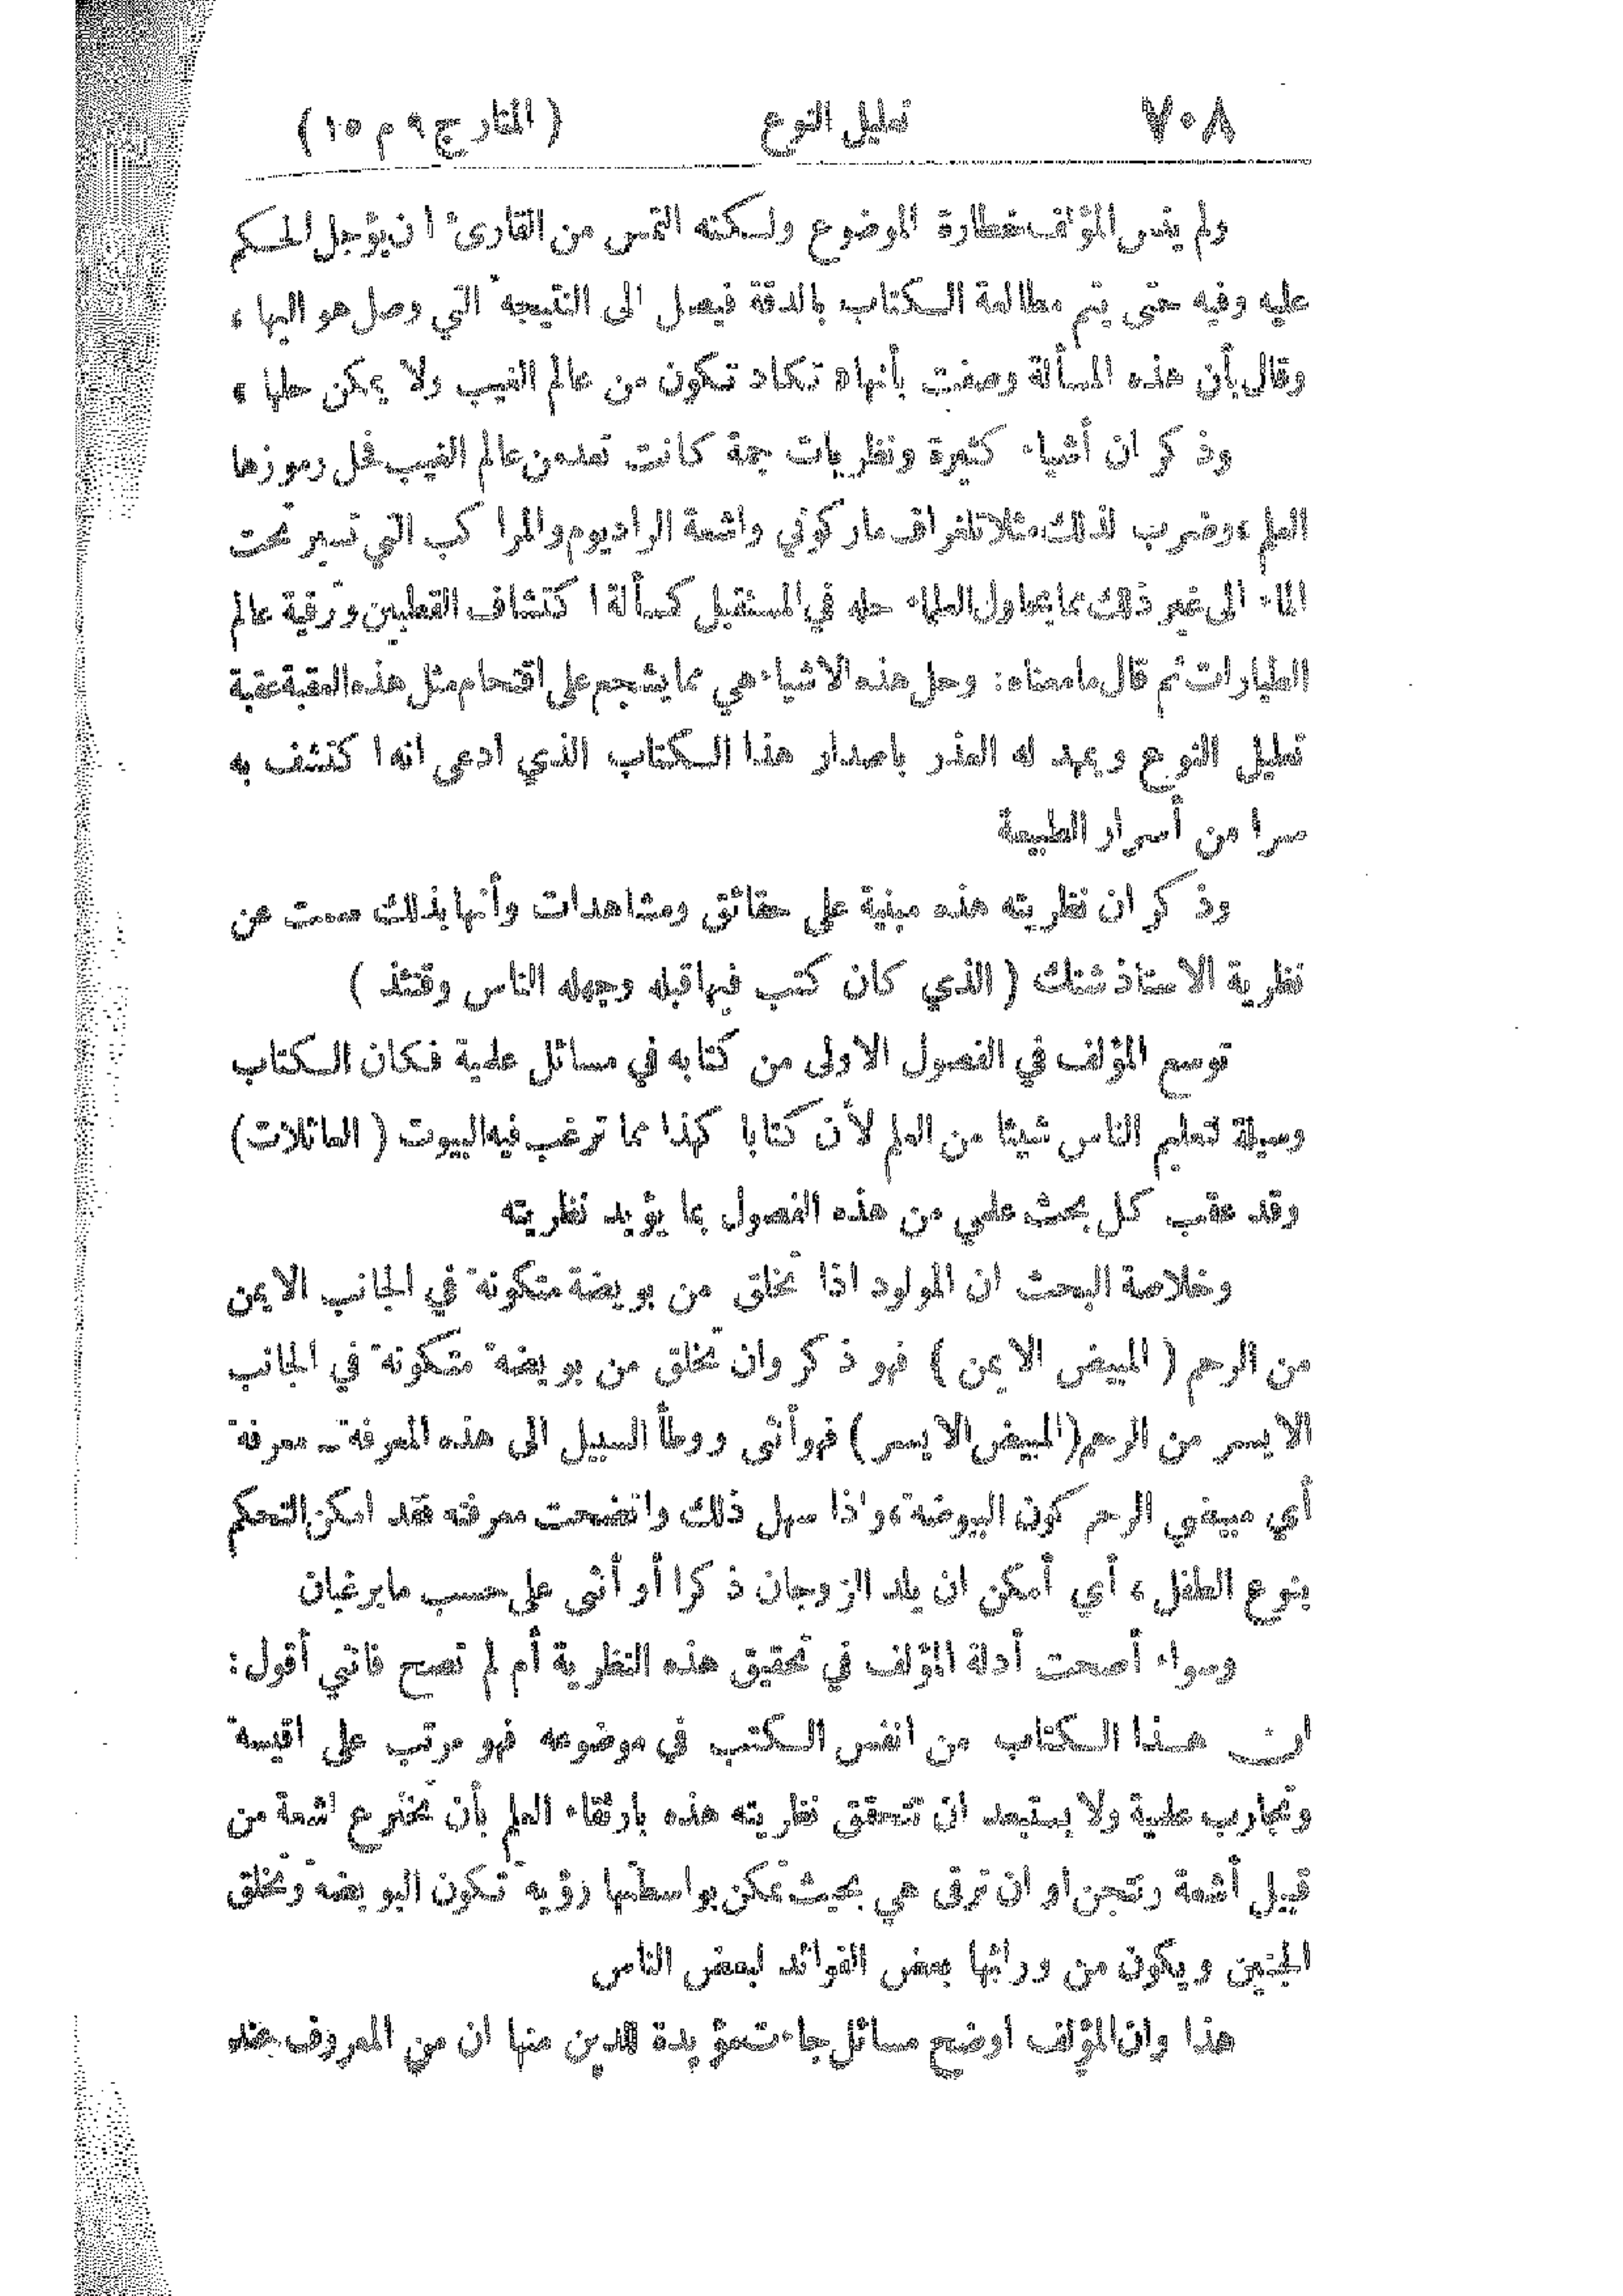 ٧٠٨ تعليل النوع ( المنارج ٩ م ١٥ )
ولم ينس المؤلف خطارة الموضوع ولكنه التمس من القارئ ان يؤجل الحكم
عليه وفيه حتى يتم مطالعة الكتاب بالدقة فيصل الى النتيجة التي وصل هو اليها ،
وقال بأن هذه المسألة وصفت بأنها « تكاد تكون من عالم الغيب ولا يمكن حلها »
وذكر ان أشياء كثيرة ونظريات جمة كانت تعد من عالم الغيب فحل رموزها
العلم ، وضرب لذلك مثلا تلغراف ماركوني واشعة الراديوم والمراكب التي تسير تحت
الماء الى غير ذلك مما يحاول العلماء حله في المستقبل كمسألة اكتشاف القطبين ورقية عالم
الطيارات ثم قال ما معناه : وحل هذه الاشياء هي مما يشجع على اقتحام مثل هذه العقبة عقبة
تعليل النوع ويمهد له العذر باصدار هذا الكتاب الذي ادعى انه اكتشف به
سرا من أسرار الطبيعة
وذكر ان نظريته هذه مبنية على حقائق ومشاهدات وأنها بذلك سمت عن
نظرية الاستاذ شنك ( الذي كان كتب فيها قبله وجهله الناس وقتئذ )
توسع المؤلف في الفصول الاولى من كتابه في مسائل علمية فكان الكتاب
وسيلة لتعليم الناس شيئا من العلم لأن كتابا كهذا مما ترغب فيه البيوت ( العائلات )
وقد عقب كل بحث علمي من هذه الفصول بما يؤيد نظريته
وخلاصة البحث ان المولود اذا تخلق من بويضة متكونة في الجانب الايمن
من الرحم ( المبيض الايمن ) فهو ذكر وان تخلق من بويضة متكونة في الجانب
الايسر من الرحم ( المبيض الايسر ) فهو أنثى ووطأ السبيل الى هذه المعرفة ـ معرفة
أي مبيضي الرحم كون البيوضة ، واذا سهل ذلك واتضحت معرفته فقد امكن التحكم
بنوع الطفل ، أي أمكن ان يلد الزوجان ذكرا أو أنثى على حسب ما يرغبان
وسواء أصحت أدلة المؤلف في تحقيق هذه النظرية أم لم تصح فانني أقول :
ان هذا الكتاب من انفس الكتب في موضوعه فهو مرتب على اقيسة
وتجارب علمية ولا يستبعد ان تتحقق نظريته هذه بارتقاء العلم بأن تخترع اشعة من
قبيل أشعة رنتجن او ان ترقى هي بحيث تمكن بواسطتها رؤية تكون البويضة وتخلق
الجنين ويكون من ورائها بعض الفوائد لبعض الناس
هذا وان المؤلف اوضح مسائل جاءت مؤيدة للدين منها ان من المعروف عند